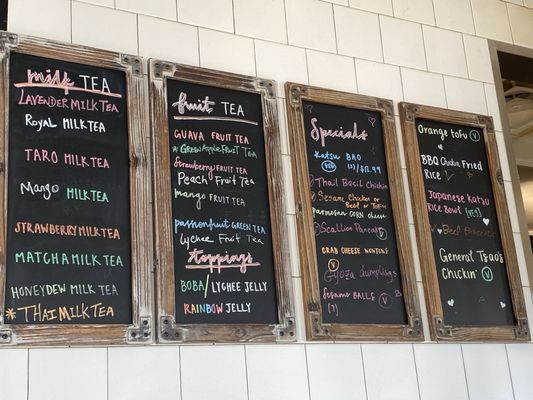 milk TEA
LAVENDER MILKTEA
ROYAL MILKTEA
TARO MILKTEA
Mango MILKTEA
STRAWBERRY MILKTEA
MATCHA MILK TEA
HONEYDEW MILK TEA
*THAI MILKTEA
fruit TEA
GUAVA FRUIT TEA
*GREEN APPLE FRUIT TEA
STRAWBERRY FRUIT TEA
Peach FRUIT TEA
mango FRUIT TEA
PASSIONFRUIT GREEN TEA
Lychee FRUIT TEA
toppings
BOBA / LYCHEE JELLY
RAINBOW JELLY
Specials
Katsu BAO
V
Thai Basil Chicken
Sesame Chicken or
Beef or Tofu
Parmesan corn cheese
Scallion Pancake
CRAB CHEESE WONTONS
V
Gyoza dumplings
Sesame BALLS V
(7)
Orange TOFU V
BBQ Chicken Fried
Rice
Japanese
Rice Bowl (V)
Beef
General Tsao's
Chickin' V